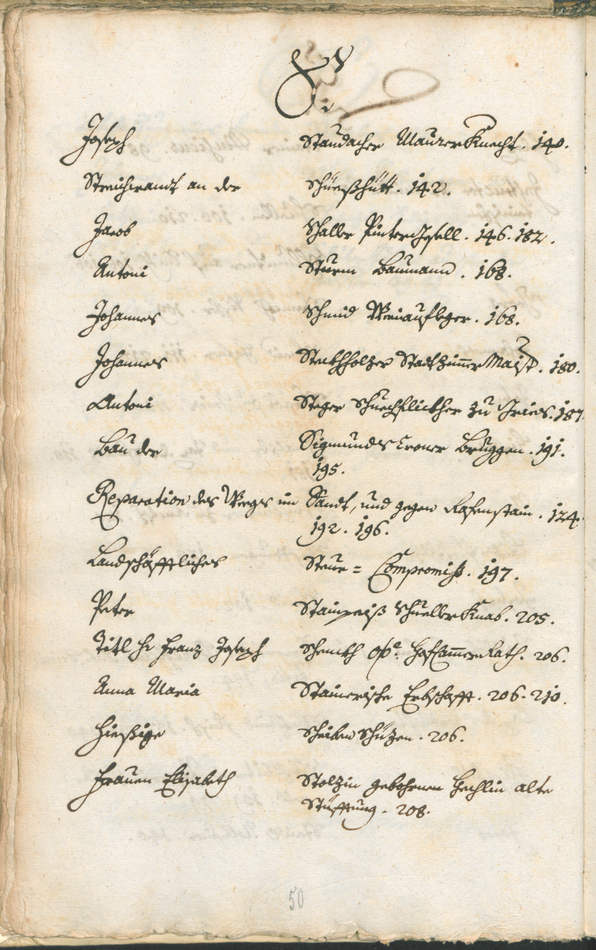 S.
Joseph Staudacher Maurer Knecht. 140.
Streichwandt an der Schießhütt. 142.
Jacob Schaller Pinter Gsell. 146. 182.
Antoni Sturm Baumann. 168.
Johannes Schmid 168.
Johannes Stockhholzer Stattzimmer Maist. 180.
Antoni Steger Schuechflickher zu Gries. 187.
Bau der Sigmundts Croner Bruggen. 191.
195.
Reparation des Weeges im Sandt, und gegen Rafenstain. 124.
192. 196.
Landschäfftliches Steur = Compromiss. 197.
Peter Stainpeiß Schueller Knab. 205.
Titl H: Franz Joseph Schenkh Hofcammer Rath. 206.
Anna Maria Stainerische Erbschafft. 206. 210.
Hiessige Scheiben Schüzen. 206.
Frauen Elisabeth Stolzin gebohrnen Hechlin alte
Stüfftung. 208.
50